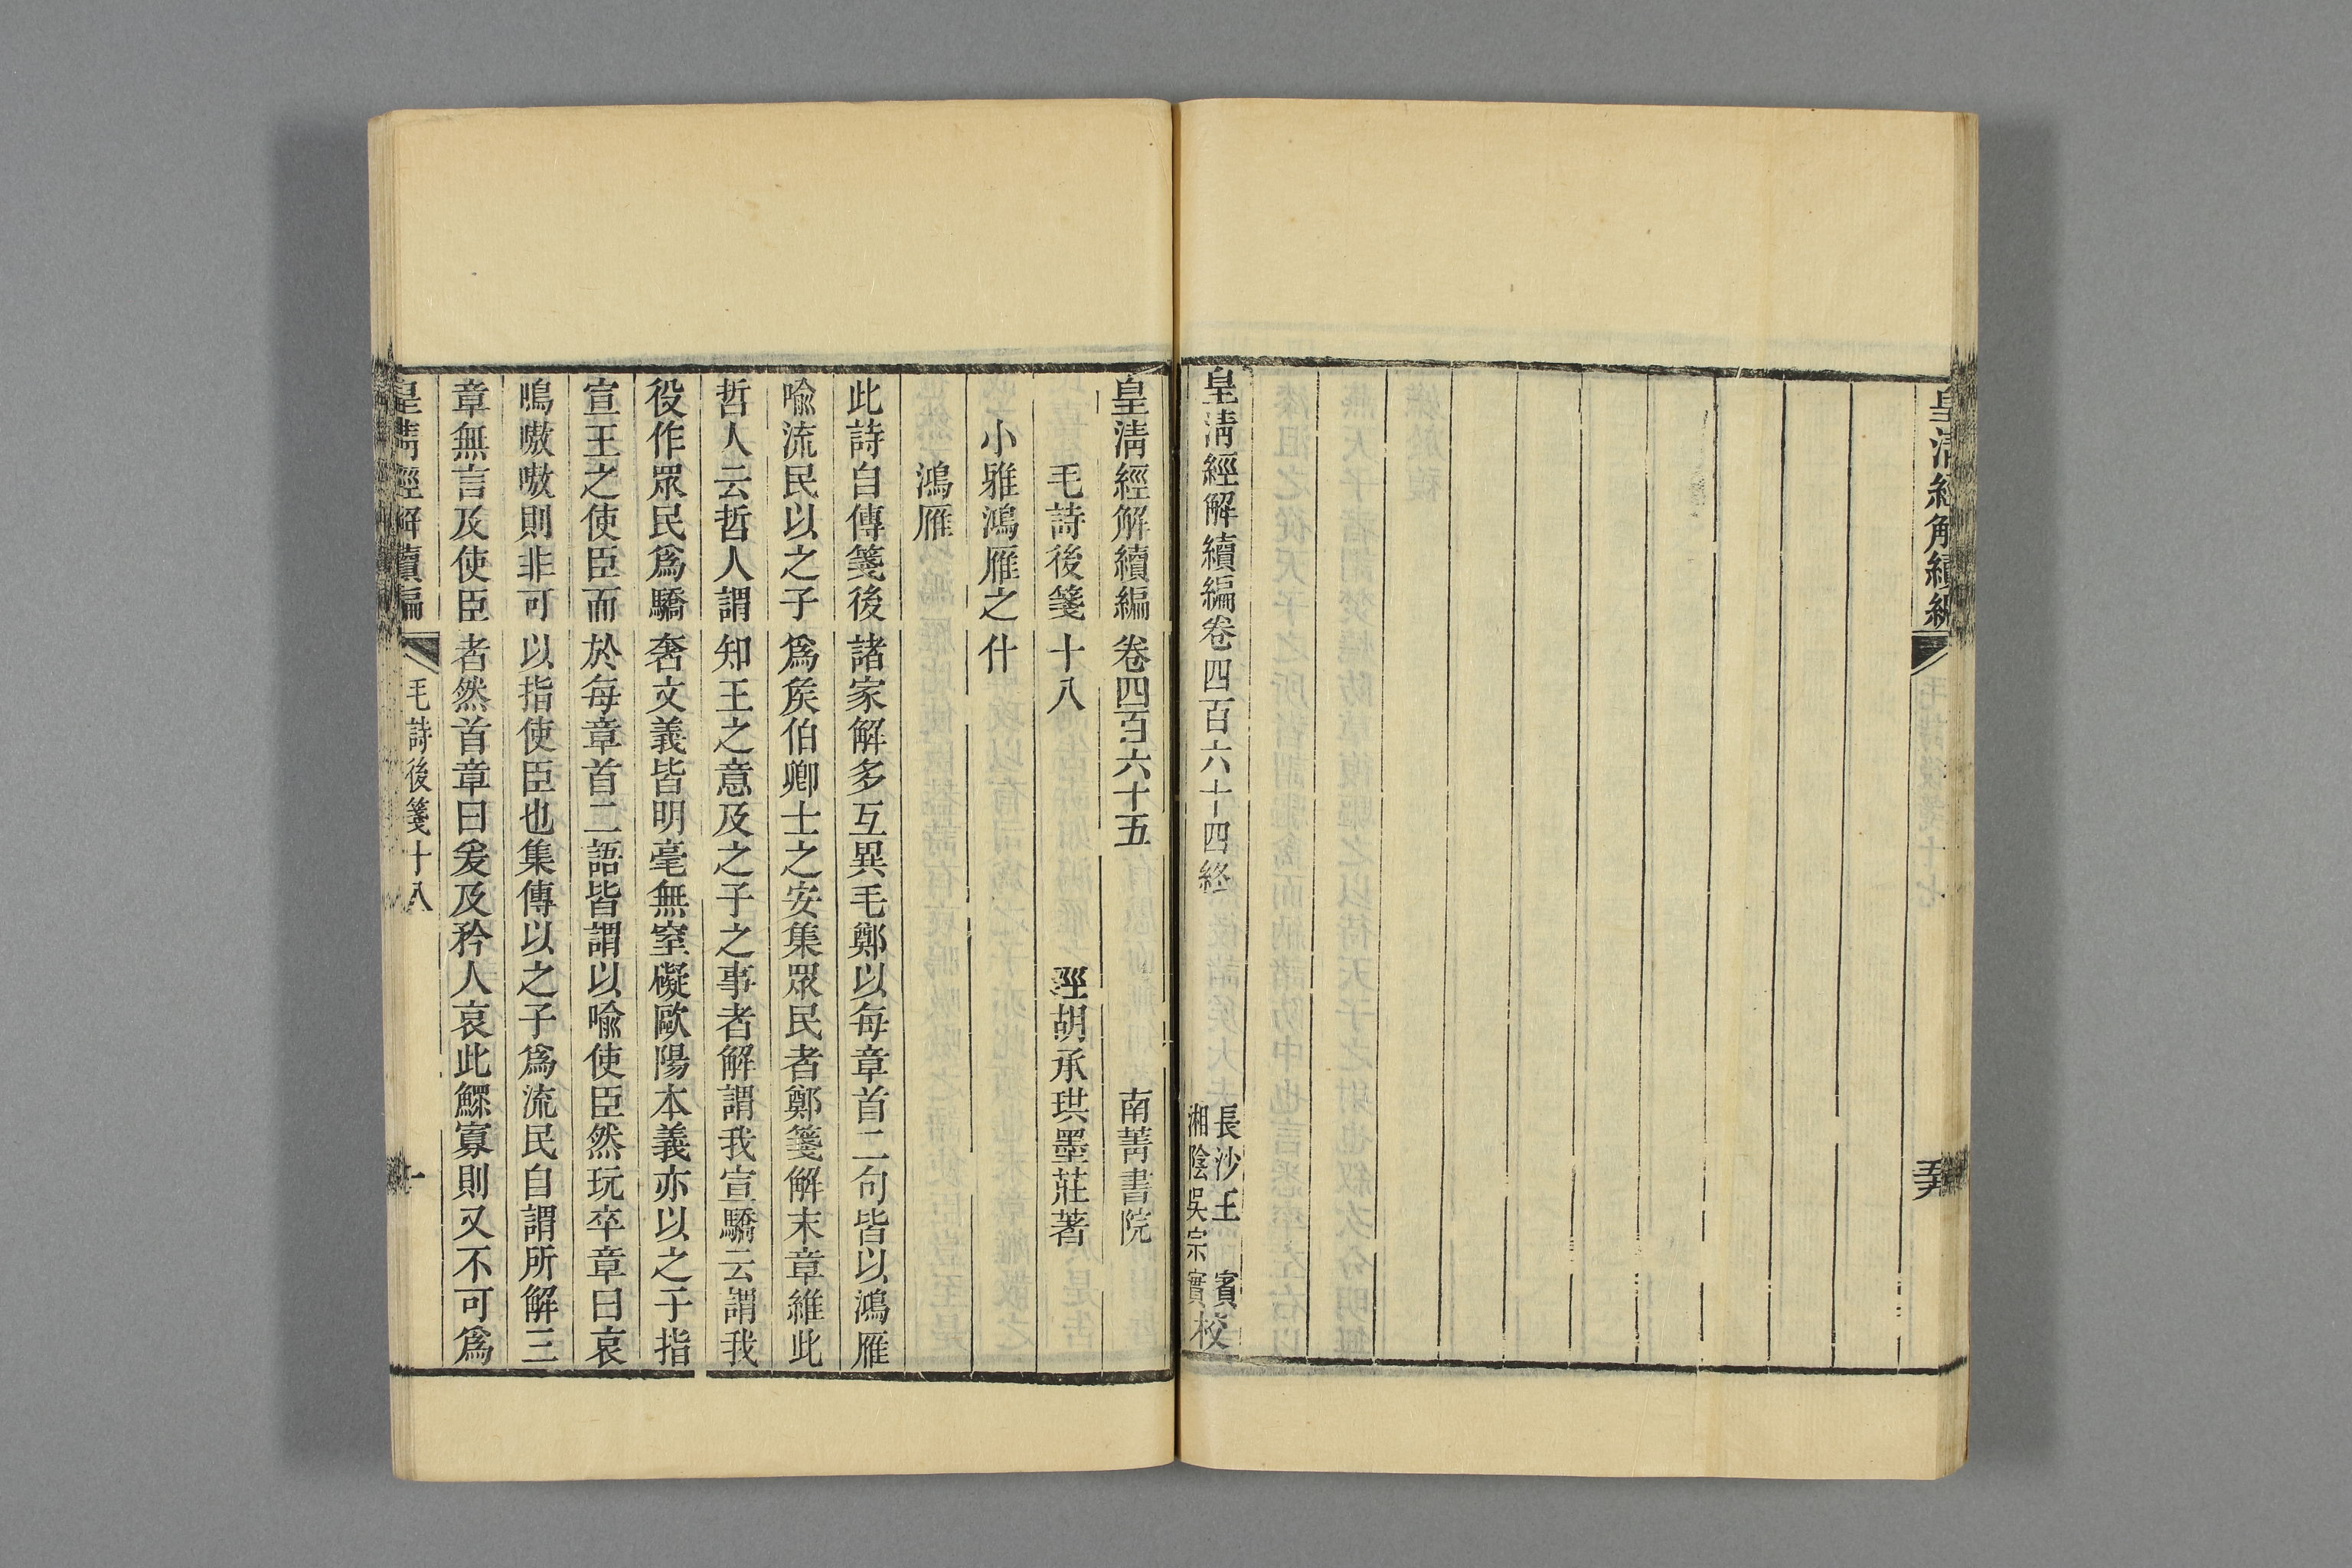 皇清經解續編
皇清經解續編卷四百六十四終
長沙王賓
湘陰吳宗實校
皇清經解續編卷四百六十五
南菁書院
毛詩後箋十八
涇胡承珙墨莊著
小雅鴻雁之什
鴻雁
此詩自傳箋後諸家解多互異毛鄭以每章首二句皆以鴻雁
喻流民以之子爲矦伯卿士之安集眾民者鄭箋解末章維此
哲人云哲人謂知王之意及之子之事者解謂我宣驕云謂我
役作眾民爲驕奢文義皆明毫無窒礙歐陽本義亦以之子指
宣王之使臣而於每章首二語皆謂以喻使臣然玩卒章曰哀
鳴嗷嗷則非可以指使臣也集傳以之子爲流民自謂所解三
章無言及使臣者然首章曰爰及矜人哀此鰥寡則又不可爲
皇清經解續編
毛詩後箋十八
一